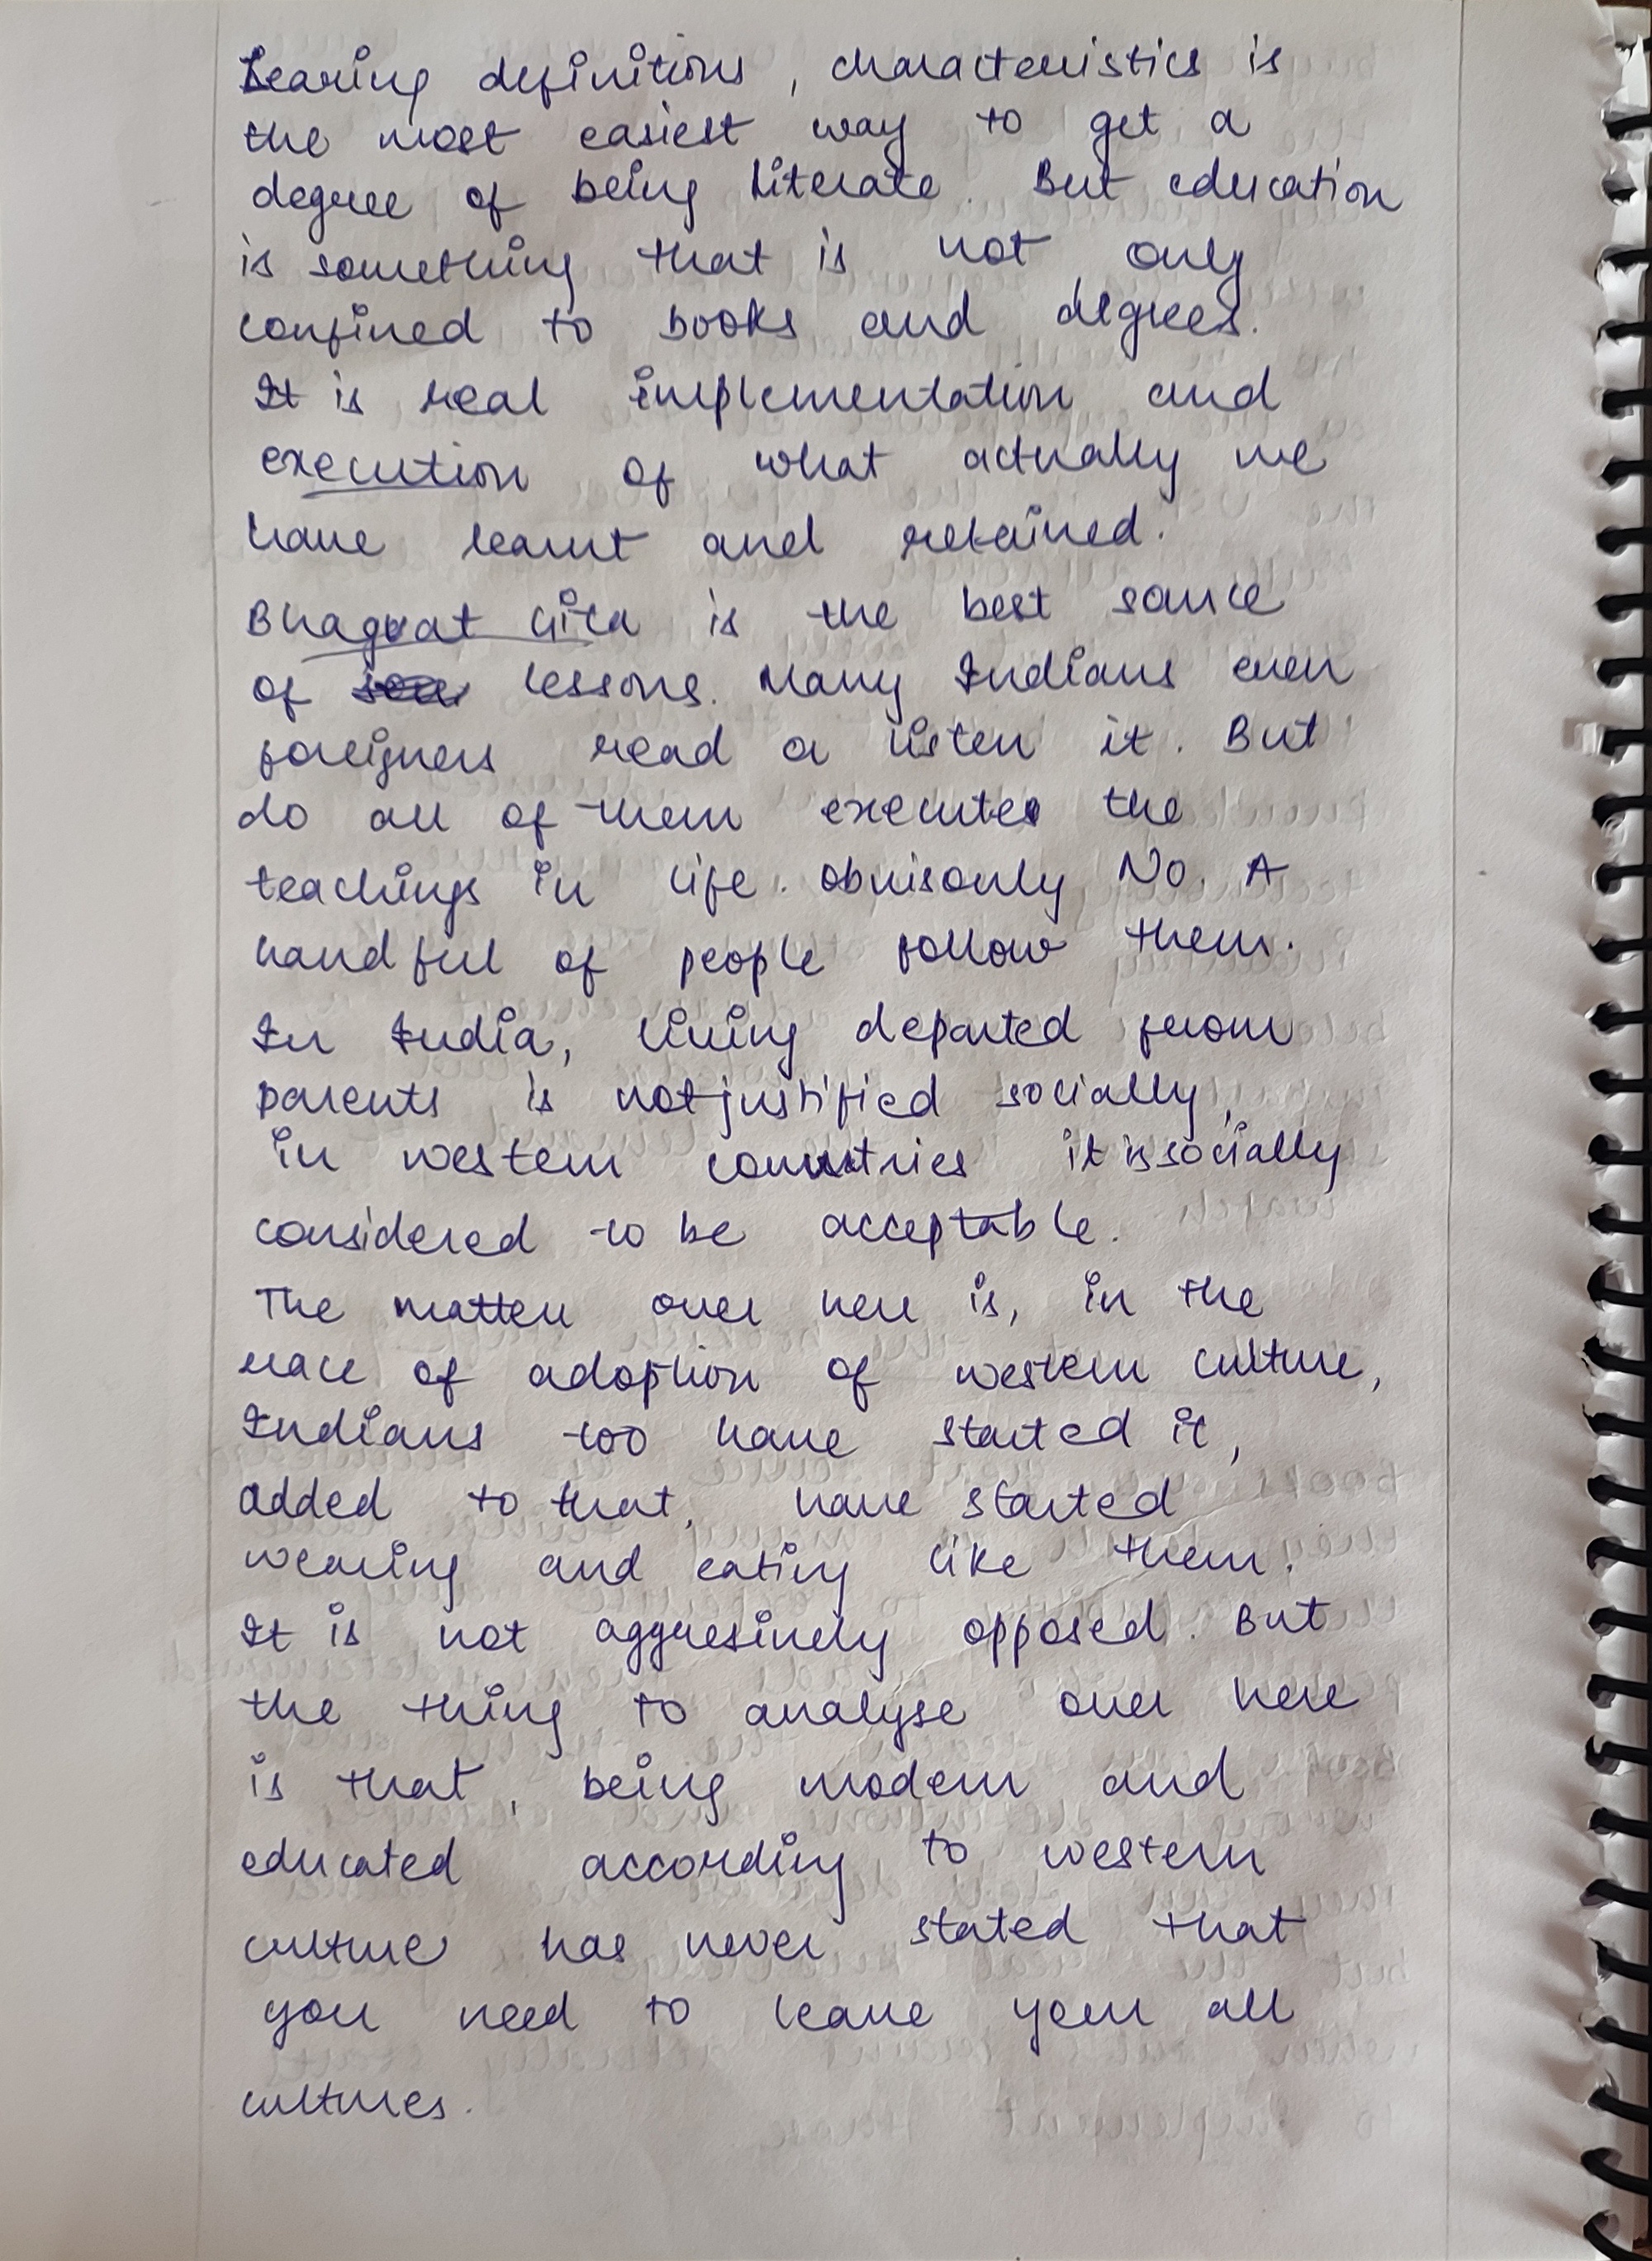 Learing definitions, characteristics is
the most easiest way to get a
degree of being literate. But education
is something that is not only
confined to books and degrees.
It is real implementation and
execution of what actually we
have learnt and retained.
Bhagvat Gita is the best source
of lessons. Many Indians even
foreigners read or listen it. But
do all of them execute the
teachings in life. obvisously No. A
handful of people follow them.
In India, living departed from
parents is not justified socially,
in western countries it is socially
considered to be acceptable.
The matter over here is, in the
race of adoption of western culture,
Indians too have started it,
added to that, have started
wearing and eating like them.
It is not aggresively opposed. But
the thing to analyse over here
is that, being modern and
educated according to western
culture has never stated that
you need to leave your all
cultures.